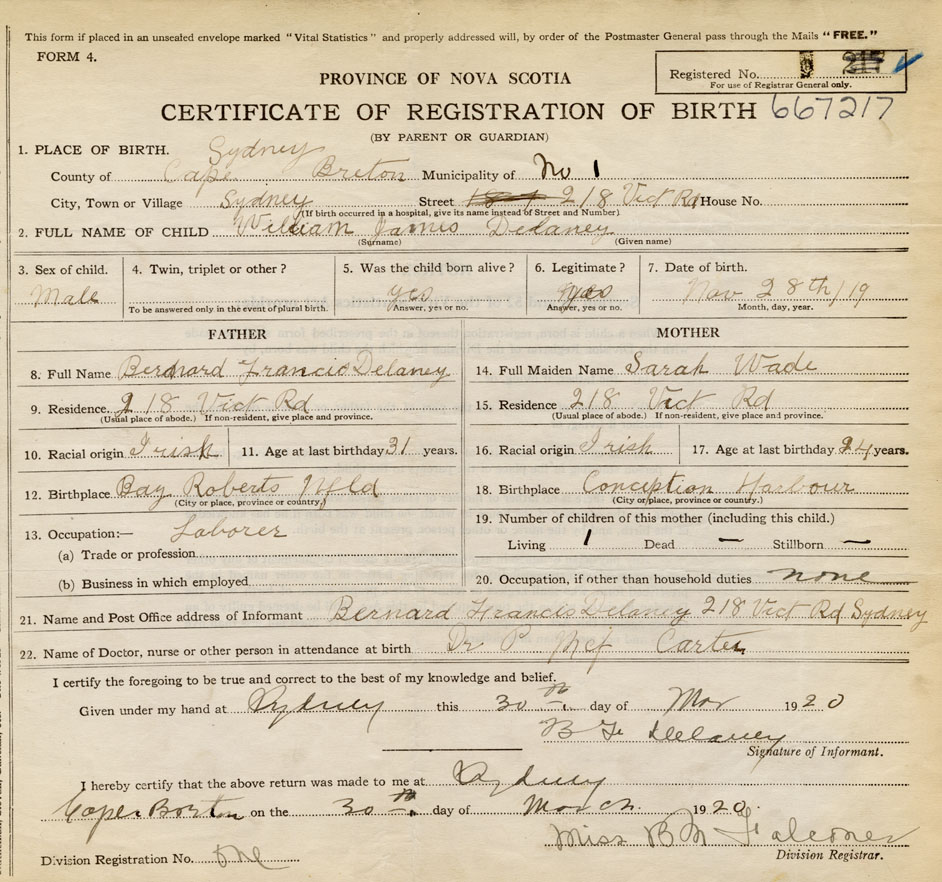 This form if placed in an unsealed envelope marked "Vital Statistics" and properly addressed will, by order of the Postmaster General pass through the Mails "FREE."
FORM 4.
Registered No. 217
For use of Registrar General only.
PROVINCE OF NOVA SCOTIA
CERTIFICATE OF REGISTRATION OF BIRTH 667217
(BY PARENT OR GUARDIAN)
1. PLACE OF BIRTH. Sydney
County of Cape Breton Municipality of No 1
City, Town or Village Sydney Street 218 Vict Rd House No.
(If birth occurred in a hospital, give its name instead of Street and Number)
2. FULL NAME OF CHILD William James Delaney
(Surname) (Given name)
3. Sex of child. 4. Twin, triplet or other? 5. Was the child born alive? 6. Legitimate? 7. Date of birth.
Male yes yes Nov 28th/19
To be answered only in the event of plural birth. Answer, yes or no. Answer, yes or no. Month, day, year.
FATHER MOTHER
8. Full Name Bernard Francis Delaney 14. Full Maiden Name Sarah Wade
9. Residence. 218 Vict Rd 15. Residence 218 Vict Rd
(Usual place of abode.) If non-resident, give place and province. (Usual place of abode.) If non-resident, give place and province.
10. Racial origin Irish 11. Age at last birthday 31 years. 16. Racial origin Irish 17. Age at last birthday 24 years.
12. Birthplace Bay Roberts Nfld 18. Birthplace Conception Harbour
(City or place, province or country.) (City or place, province or country.)
13. Occupation:— Laborer 19. Number of children of this mother (including this child.)
(a) Trade or profession Living 1 Dead — Stillborn —
(b) Business in which employed 20. Occupation, if other than household duties none
21. Name and Post Office address of Informant Bernard Francis Delaney 218 Vict Rd Sydney
22. Name of Doctor, nurse or other person in attendance at birth Dr P Carter
I certify the foregoing to be true and correct to the best of my knowledge and belief.
Given under my hand at Sydney this 30th day of Mar 1920
B F Delaney
Signature of Informant.
I hereby certify that the above return was made to me at Sydney
Cape Breton on the 30th day of March 1920.
Miss B M Falconer
Division Registrar.
Division Registration No. One